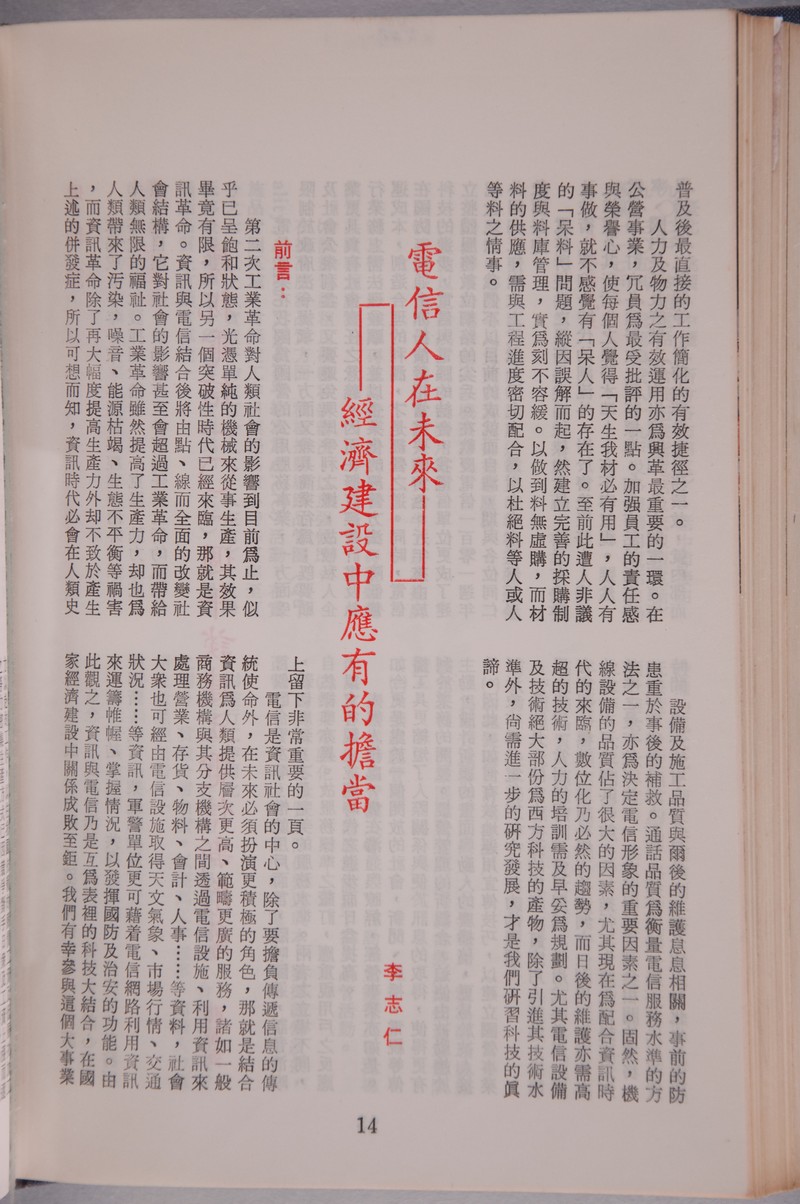 普及後最直接的工作簡化的有效捷徑之一。
人力及物力之有效運用亦爲興革最重要的一環。在
公營事業，冗員爲最受批評的一點。加强員工的責任感
與榮譽心，使每個人覺得「天生我材必有用」，人人有
事做，就不感覺有「呆人」的存在了。至前此遭人非議
的「呆料」問題，縱因誤解而起，然建立完善的採購制
度與料庫管理，實爲刻不容緩。以做到料無虛購，而材
料的供應，需與工程進度密切配合，以杜絕料等人或人
等料之情事。
設備及施工品質與爾後的維護息息相關，事前的防
患重於事後的補救。通話品質爲衡量電信服務水準的方
法之一，亦爲決定電信形象的重要因素之一。固然，機
線設備的品質佔了很大的因素，尤其現在爲配合資訊時
代的來臨，數位化乃必然的趨勢，而日後的維護亦需高
超的技術，人力的培訓需及早妥爲規劃。尤其電信設備
及技術絕大部份爲西方科技的產物，除了引進其技術水
準外，尙需進一步的硏究發展，才是我們硏習科技的眞
諦。
電信人在未來
經濟建設中應有的擔當
李志仁
前言：
第二次工業革命對人類社會的影響到目前爲止，似
乎已呈飽和狀態，光憑單純的機械來從事生產，其效果
畢竟有限，所以另一個突破性時代已經來臨，那就是資
訊革命。資訊與電信結合後將由點、線而全面的改變社
會結構，它對社會的影響甚至會超過工業革命，而帶給
人類無限的福祉。工業革命雖然提高了生產力，却也爲
人類帶來了汚染，噪音、能源枯竭、生態不平衡等禍害
，而資訊革命除了再大幅度提高生產力外却不致於產生
上述的併發症，所以可想而知，資訊時代必會在人類史
上留下非常重要的一頁。
電信是資訊社會的中心，除了要擔負傳遞信息的傳
統使命外，在未來必須扮演更積極的角色，那就是結合
資訊爲人類提供層次更高、範疇更廣的服務，諸如一般
商務機構與其分支機構之間透過電信設施、利用資訊來
處理營業、存貨、物料、會計、人事……等資料，社會
大衆也可經由電信設施取得天文氣象、市場行情、交通
狀況……等資訊，軍警單位更可藉着電信網路利用資訊
來運籌帷幄、掌握情況，以發揮國防及治安的功能。由
此觀之，資訊與電信乃是互爲表裡的科技大結合，在國
家經濟建設中關係成敗至鉅。我們有幸參與這個大事業
14